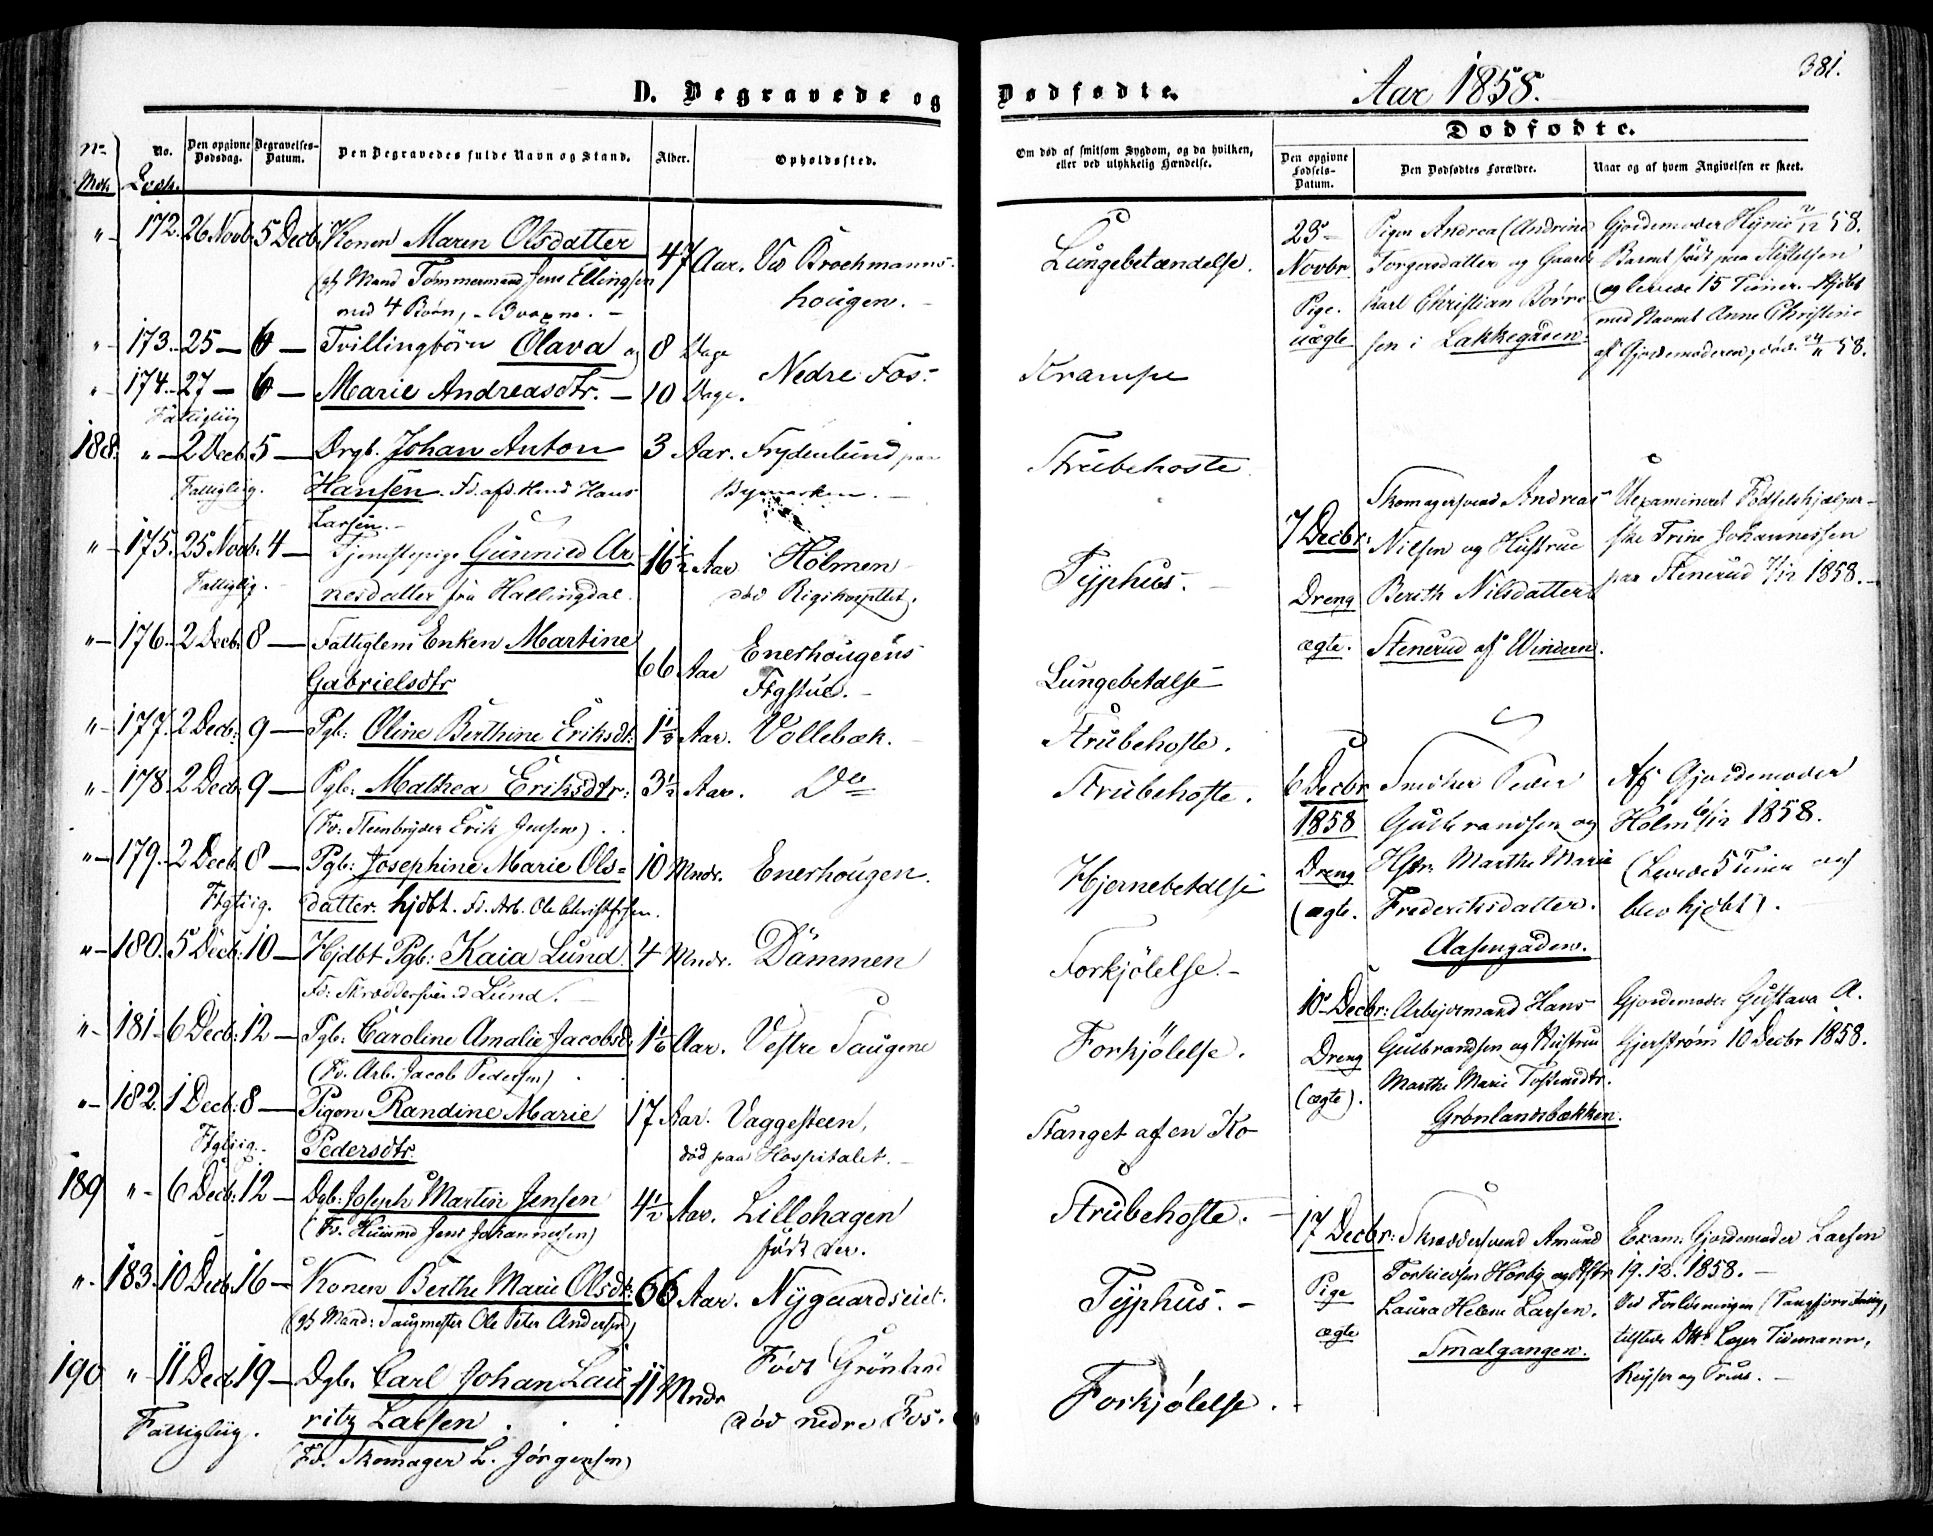 D. Begravede og
No. Mdk.
No. Qvdk.
Den opgivne Dødsdag.
Begravelses-Datum.
Den Begravedes fulde Navn og Stand.
Alder.
Opholdssted.
" 172. 26 Novb. 5 Decb. Konen Maren Olsdatter 47 Aar. Ved Brochmanns-
(gf. Mand Tømmermand Jens Ellingsen hougen.
med 4 Børn,
" 173. 25 — 6 — Tvillingbørn Olava og 8 Dage
Nedre Fos.
" 174. 27 — 6 — Marie Andreasdtr. — 10 Dage.
Fattiglig
188. " 2 Decb. 5 — Drgb. Johan Anton 3 Aar. Frydenlund paa
Fattiglig. Hansen. Fd. afd. Hans Bymarken.
Larsen.
" 175. 25 Novb. 4 — Tjenestepige Gunnild Ar- 16 1/2 Aar Holmen
Fattiglig. nesdatter fra Hallingdal. død Rigshospitlet.
" 176. 2 Decb. 8 — Fattiglem Enken Martine Enerhougens
66 Aar
Gabrielsdtr Ftgstue.
" 177. 2 Decb. 9 — Pgb. Oline Berthine Eriksdt. 1 1/2 Aar. Vollebæk.
" 178. 2 Decb. 9 — Pgb. Mathea Eriksdtr. 3 1/2 Aar. Do
(Fd. Steenbryder Erik Jensen)
" 179. 2 Decb. 8 — Pgb. Josephine Marie Ols- 10 Mndr. Enerhougen.
Ftglig. datter. hjdbt. Fd. Arb. Ole Christophersen.
" 180. 5 Decb. 10 — Hjdbt Pgb. Kaia Lund 4 Mndr. Dammen
Fd. Skræddersvend Lund.
" 181. 6 Decb. 12 — Pgb. Caroline Amalie Jacobsd. 1 1/6 Aar. Vestre Saugene
(Fd. Arb. Jacob Pedersen)
" 182. 1 Decb. 8 — Pigen Randine Marie 17 Aar. Vaggesteen,
Ftglig. Pedersdtr. død paa Hospitalet.
189 " 6 Decb. 12 — Dgb. Joseph Martin Jensen 4 1/2 Aar. Lillohagen
(Fd. Huusmd Jens Johannesen) født der.
" 183. 10 Decb. 16 — Konen Berthe Marie Olsdt. 66 Aar. Nygaardseiet.
(gf. Mand: Saugmester Ole Peter Andersen)
190 " 11 Dec. 19 — Dgb. Carl Johan Lau- 11 Mndr Født Grønland
Fattiglig. ritz Larsen død nedre Fos.
(Fd. Skomager L. Jørgensen)
Dødfødte. Aar 1858. 381.
Dødfødte.
Om død af smitsom Sygdom, og da hvilken,
eller ved ulykkelig Hændelse.
Den opgivne Fødsels-Datum.
Den Dødfødtes Forældre.
Naar og af hvem Angivelsen er skeet.
Lungebetændelse.
Krampe
Strubehoste
Typhus.
Lungebetdlse
Strubehoste.
Strubehoste.
Hjernebetdlse
Forkjølelse.
Forkjølelse.
Stanget af en Ko
Strubehoste.
Typhus.
Forkjølelse.
23 Pigen Andrea (Andrine Gjordemoder 2/12 58.
Novbr. Torgersdatter og Barnet født paa Stiftelsen
Pige. Karl Christian Børre- og levede 15 Timer. Hjdbt
uægte sen i Lakkegaden. med Navnet Anne Christine
af Gjordemoderen, død 24/11 58.
7 Decbr. Skomagersvend Andreas Uexamineret Fødselshjælper-
Nilsen og Hustrue ske Trine Johannessen
Dreng Berith Nilsdatter paa Stenerud 7/12 1858.
ægte. Stenerud af Windern.
6 Decbr. Snedker Peder Af Gjordemoder
1858 Gulbrandsen og Holm 6/12 1858.
Dreng Hstr. Marthe Marie (Levede 5 Timer og
(ægte. Frederiksdatter. blev hjdbt).
Aasengaden.
10 Decbr. Arbejdsmand Hans Gjordemoder Gustava A.
Dreng Gulbrandsen og Hustrue Gjerstrøm 10 Decbr 1858.
(ægte). Marthe Marie Tostensdtr.
Grønlandsbækken.
17 Decbr. Skræddersvend Amund Exam. Gjordemoder Larsen
Pige og Hstr 19.12.1858.
ægte Laura Helene Larsen. Ved Forløsningen (Tangforretning,
Smalgangen. tilstede Læger Tiemann,
Keyser og